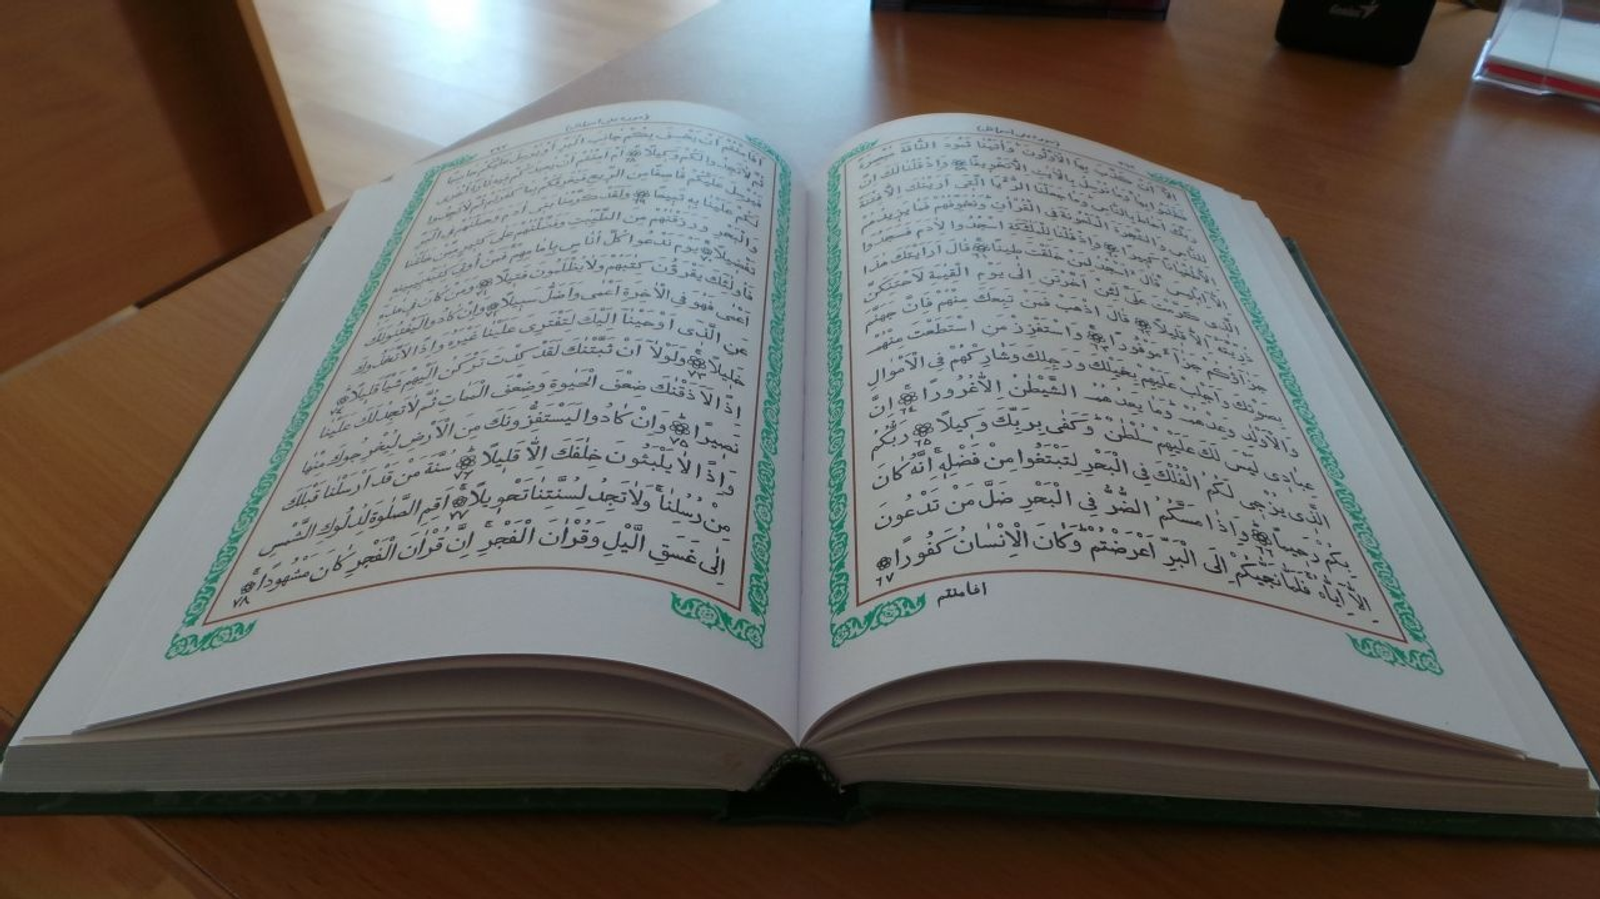 سورة بنى اسرائيل
الَّا اَنْ كَذَّبَ بِهَا الْاَوَّلُونَ وَاٰتَيْنَا ثَمُودَ النَّاقَةَ مُبْصِرَةً
فَظَلَمُوا بِهَا وَمَا نُرْسِلُ بِالْاٰيَاتِ اِلَّا تَخْوِيفًا وَاِذْ قُلْنَا لَكَ اِنَّ
رَبَّكَ اَحَاطَ بِالنَّاسِ وَمَا جَعَلْنَا الرُّءْيَا الَّتِى اَرَيْنَاكَ اِلَّا فِتْنَةً
لِلنَّاسِ وَالشَّجَرَةَ الْمَلْعُونَةَ فِى الْقُرْاٰنِ وَنُخَوِّفُهُمْ فَمَا يَزِيدُهُمْ
اِلَّا طُغْيَانًا كَبِيرًا وَاِذْ قُلْنَا لِلْمَلٰئِكَةِ اسْجُدُوا لِاٰدَمَ فَسَجَدُوا
اِلَّا اِبْلِيسَ قَالَ ءَاَسْجُدُ لِمَنْ خَلَقْتَ طِينًا ٦١ قَالَ اَرَاَيْتَكَ هٰذَا
الَّذِى كَرَّمْتَ عَلَىَّ لَئِنْ اَخَّرْتَنِ اِلٰى يَوْمِ الْقِيٰمَةِ لَاَحْتَنِكَنَّ
ذُرِّيَّتَهُ اِلَّا قَلِيلًا ٦٢ قَالَ اذْهَبْ فَمَنْ تَبِعَكَ مِنْهُمْ فَاِنَّ جَهَنَّمَ
جَزَاؤُكُمْ جَزَاءً مَوْفُورًا ٦٣ وَاسْتَفْزِزْ مَنِ اسْتَطَعْتَ مِنْهُمْ
بِصَوْتِكَ وَاَجْلِبْ عَلَيْهِمْ بِخَيْلِكَ وَرَجِلِكَ وَشَارِكْهُمْ فِى الْاَمْوَالِ
وَالْاَوْلَادِ وَعِدْهُمْ وَمَا يَعِدُهُمُ الشَّيْطٰنُ اِلَّا غُرُورًا ٦٤ اِنَّ
عِبَادِى لَيْسَ لَكَ عَلَيْهِمْ سُلْطٰنٌ وَكَفٰى بِرَبِّكَ وَكِيلًا ٦٥ رَبُّكُمُ
الَّذِى يُزْجِى لَكُمُ الْفُلْكَ فِى الْبَحْرِ لِتَبْتَغُوا مِنْ فَضْلِهِ اِنَّهُ كَانَ
بِكُمْ رَحِيمًا ٦٦ وَاِذَا مَسَّكُمُ الضُّرُّ فِى الْبَحْرِ ضَلَّ مَنْ تَدْعُونَ
اِلَّا اِيَّاهُ فَلَمَّا نَجّٰيكُمْ اِلَى الْبَرِّ اَعْرَضْتُمْ وَكَانَ الْاِنْسَانُ كَفُورًا ٦٧
افامنتم
سورة بنى اسرائيل
اَفَاَمِنْتُمْ اَنْ يَخْسِفَ بِكُمْ جَانِبَ الْبَرِّ اَوْ يُرْسِلَ عَلَيْكُمْ حَاصِبًا
ثُمَّ لَا تَجِدُوا لَكُمْ وَكِيلًا ٦٨ اَمْ اَمِنْتُمْ اَنْ يُعِيدَكُمْ فِيهِ تَارَةً اُخْرٰى
فَيُرْسِلَ عَلَيْكُمْ قَاصِفًا مِنَ الرِّيحِ فَيُغْرِقَكُمْ بِمَا كَفَرْتُمْ ثُمَّ لَا تَجِدُوا
لَكُمْ عَلَيْنَا بِهِ تَبِيعًا ٦٩ وَلَقَدْ كَرَّمْنَا بَنِى اٰدَمَ وَحَمَلْنَاهُمْ فِى الْبَرِّ
وَالْبَحْرِ وَرَزَقْنَاهُمْ مِنَ الطَّيِّبَاتِ وَفَضَّلْنَاهُمْ عَلٰى كَثِيرٍ مِمَّنْ خَلَقْنَا
تَفْضِيلًا ٧٠ يَوْمَ نَدْعُوا كُلَّ اُنَاسٍ بِاِمَامِهِمْ فَمَنْ اُوتِىَ كِتَابَهُ بِيَمِينِهِ
فَاُولٰئِكَ يَقْرَؤُنَ كِتَابَهُمْ وَلَا يُظْلَمُونَ فَتِيلًا ٧١ وَمَنْ كَانَ فِى هٰذِهِ
اَعْمٰى فَهُوَ فِى الْاٰخِرَةِ اَعْمٰى وَاَضَلُّ سَبِيلًا ٧٢ وَاِنْ كَادُوا لَيَفْتِنُونَكَ
عَنِ الَّذِى اَوْحَيْنَا اِلَيْكَ لِتَفْتَرِىَ عَلَيْنَا غَيْرَهُ وَاِذًا لَاتَّخَذُوكَ
خَلِيلًا ٧٣ وَلَوْلَا اَنْ ثَبَّتْنَاكَ لَقَدْ كِدْتَ تَرْكَنُ اِلَيْهِمْ شَيْئًا قَلِيلًا ٧٤
اِذًا لَاَذَقْنَاكَ ضِعْفَ الْحَيٰوةِ وَضِعْفَ الْمَمَاتِ ثُمَّ لَا تَجِدُ لَكَ عَلَيْنَا
نَصِيرًا ٧٥ وَاِنْ كَادُوا لَيَسْتَفِزُّونَكَ مِنَ الْاَرْضِ لِيُخْرِجُوكَ مِنْهَا
وَاِذًا لَا يَلْبَثُونَ خِلَافَكَ اِلَّا قَلِيلًا ٧٦ سُنَّةَ مَنْ قَدْ اَرْسَلْنَا قَبْلَكَ
مِنْ رُسُلِنَا وَلَا تَجِدُ لِسُنَّتِنَا تَحْوِيلًا ٧٧ اَقِمِ الصَّلٰوةَ لِدُلُوكِ الشَّمْسِ
اِلٰى غَسَقِ الَّيْلِ وَقُرْاٰنَ الْفَجْرِ اِنَّ قُرْاٰنَ الْفَجْرِ كَانَ مَشْهُودًا ٧٨
Genius